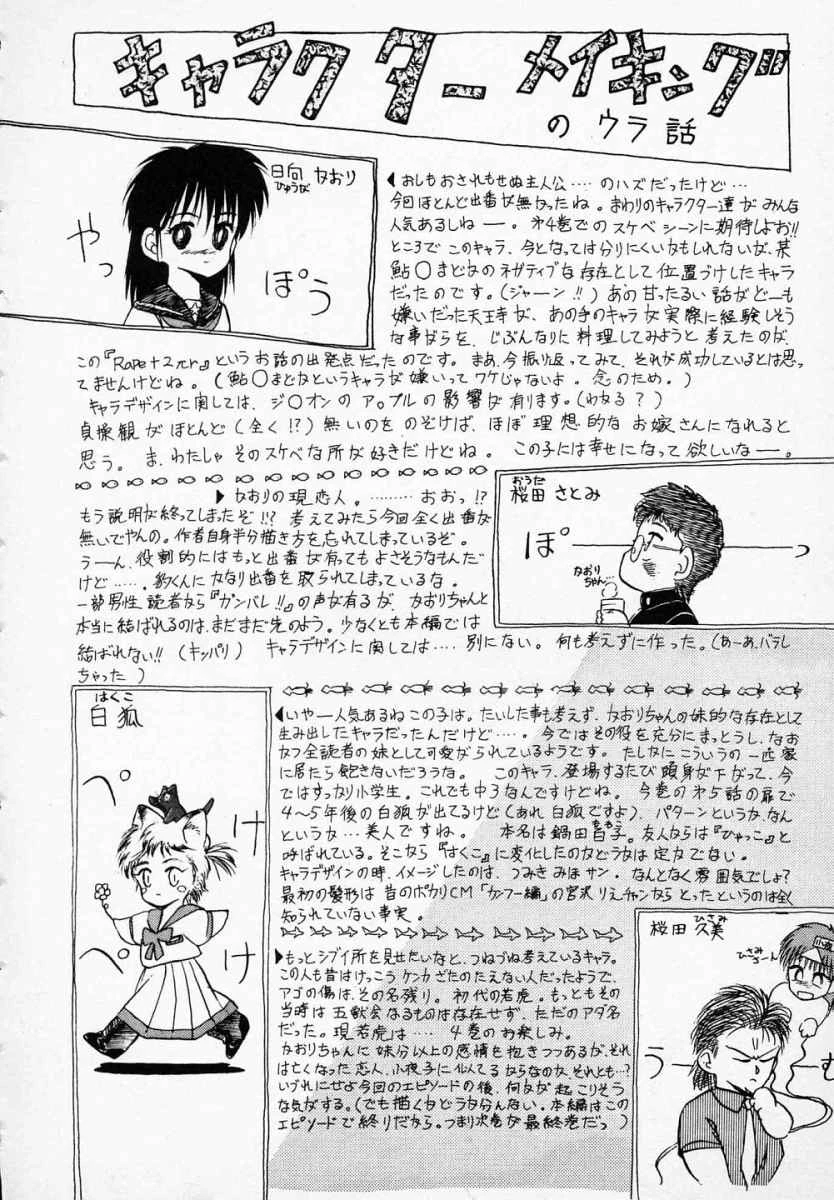 キャラクターメイキング
のウラ話
日向 かおり
ひゅうが
やっ
ぽぅ
◀おしもおされもせぬ主人公‥‥のハズだったけど…
今回ほとんど出番が無かったね。まわりのキャラクター達がみんな
人気あるしねー。才4巻でのスケベシーンに期待しよお!!
ところでこのキャラ、今となっては分りにくいかもしれないが、某
鮎○まどかのネガティブな存在として位置づけしたキャラ
だったのです。(ジャーン!!)あの甘ったるい話がどーも
嫌いだった天王寺が、あの手のキャラが実際に経験しそう
な事がらを、じぶんなりに料理してみようと考えたのが、
この『Rape+2πr』というお話の出発点だったのです。まあ、今振り返ってみて、それが成功しているとは思っ
てませんけどね。(鮎○まどかというキャラが嫌いってワケじゃないよ。念のため。)
キャラデザインに関しては、ジ○オンのア○プルの影響が有ります。(わかる?)
貞操観がほとんど(全く!?)無いのをのぞけば、ほぼ理想的なお嫁さんになれると
思う。ま、わたしゃそのスケベな所が好きだけどね。この子には幸せになって欲しいなー。
おうた
桜田 さとみ
ぽーっ
かおり
ちゃん…
▶かおりの現恋人。………おおっ!?
もう説明が終ってしまったぞ!?考えてみたら今回全く出番が
無いでやんの。作者自身半分描き方を忘れてしまっているぞ。
うーん、役割的にはもっと出番が有ってもよさそうなもんだ
けど……、豹くんにかなり出番を取られてしまっているな。
一部男性読者から『ガンバレ!!』の声が有るが、かおりちゃんと
本当に結ばれるのは、まだまだ先のよう。少なくとも本編では
結ばれない!!(キッパリ)キャラデザインに関しては‥‥別にない。何も考えずに作った。(あーあ、バラし
ちゃった)
はくこ
白狐
ぺけ
ぺけ
◀いやー人気あるねこの子は。たいした事も考えず、かおりちゃんの妹的な存在として
生み出したキャラだったんだけど‥‥。今ではその役を充分にまっとうし、なお
かつ全読者の妹として可愛がられているようです。たしかにこういうの一匹家
に居たら飽きないだろうな。このキャラ、登場するたび頭身が下がって、今
ではすっかり小学生。これでも中3なんですけどね。今巻の才5話の扉で
4～5年後の白狐が出てるけど(あれ白狐ですよ)、パターンというか、なん
というか…美人ですね。本名は鍋田百子。友人からは『ひゃっこ』と
もも
呼ばれている。そこから『はくこ』に変化したのかどうかは定かでない。
キャラデザインの時、イメージしたのは、つみきみほサン。なんとなく雰囲気でしょ?
最初の髪形は昔のポカリCM「カンフー編」の宮沢りえチャンからとったというのは全く
知られていない事実。
ひさみ
桜田 久美
ひさみ
ちゃーん
うーむ
◀もっとシブイ所を見せたいなと、つねづね考えているキャラ。
この人も昔はけっこうケンカざたのたえない人だったようで、
アゴの傷は、その名残り。初代の若虎。もっともその
当時は五獣会なるものは存在せず、ただのアダ名
だった。現若虎は…、4巻のお楽しみ。
かおりちゃんに妹分以上の感情を抱きつつあるが、それ
は亡くなった恋人、小夜子に似てるからなのか、それとも…?
いづれにせよ今回のエピソードの後、何かが起こりそう
な気がする。(でも描くかどうか分んない。本編はこの
エピソードで終りだから。つまり次巻が最終巻だっ)